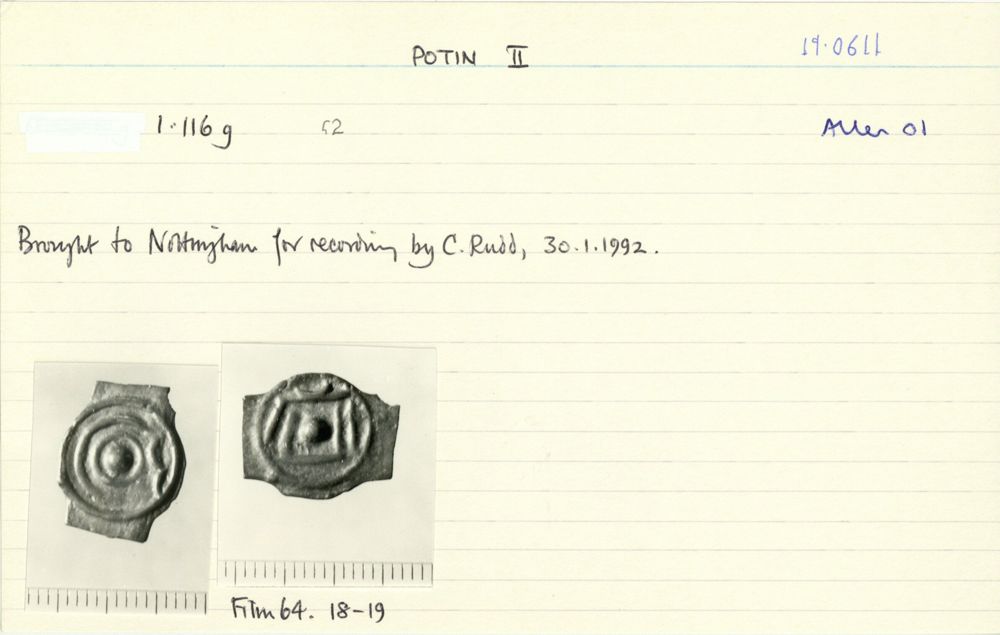 POTIN II
19.0611
1.116 g
Allen O1
Brought to Nottingham for recording by C. Rudd, 30.1.1992.
Film 64. 18-19